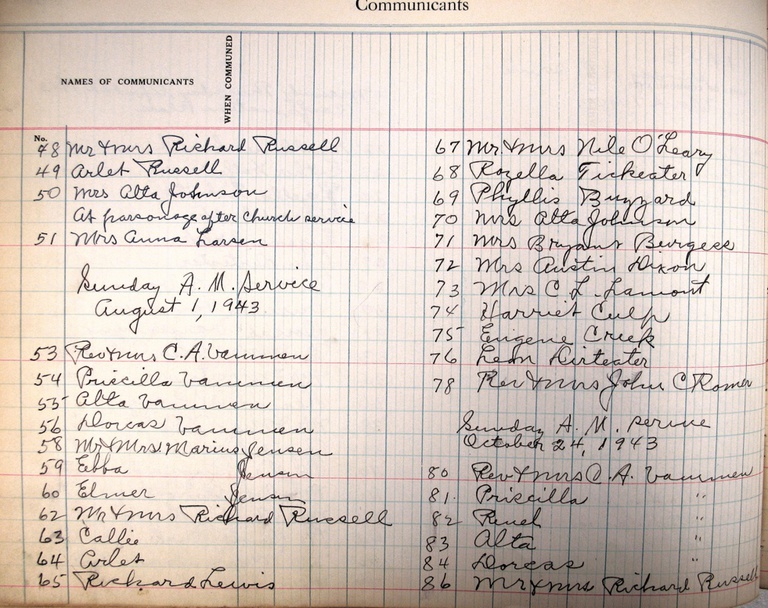 Communicants
NAMES OF COMMUNICANTS
WHEN COMMUNED
No.
48 Mr & Mrs Richard Russell
49 Arlet Russell
50 Mrs Alta Johnson
At parsonage after church service
51 Mrs Anna Larsen
Sunday A. M. Service
August 1, 1943
53 Rev & Mrs C. A. Vammen
54 Priscilla Vammen
55 Alta Vammen
56 Dorcas Vammen
58 Mr & Mrs Marius Jensen
59 Ebba Jensen
60 Elmer Jensen
62 Mr & Mrs Richard Russell
63 Callie
64 Arlet
65 Richard Lewis
67 Mr & Mrs Nile O'Leary
68 Rozella Fickeater
69 Phyllis Buzzard
70 Mrs Alta Johnson
71 Mrs Bryant Burgess
72 Mrs Austin Dixon
73 Mrs C. L. Lamont
74 Harriet Culp
75 Eugene Creek
76 Leon Dirteater
78 Rev & Mrs John C Romer
Sunday A. M. Service
October 24, 1943
80 Rev & Mrs C. A. Vammen
81. Priscilla "
82 Reuel "
83 Alta "
84 Dorcas "
86 Mr & Mrs Richard Russell